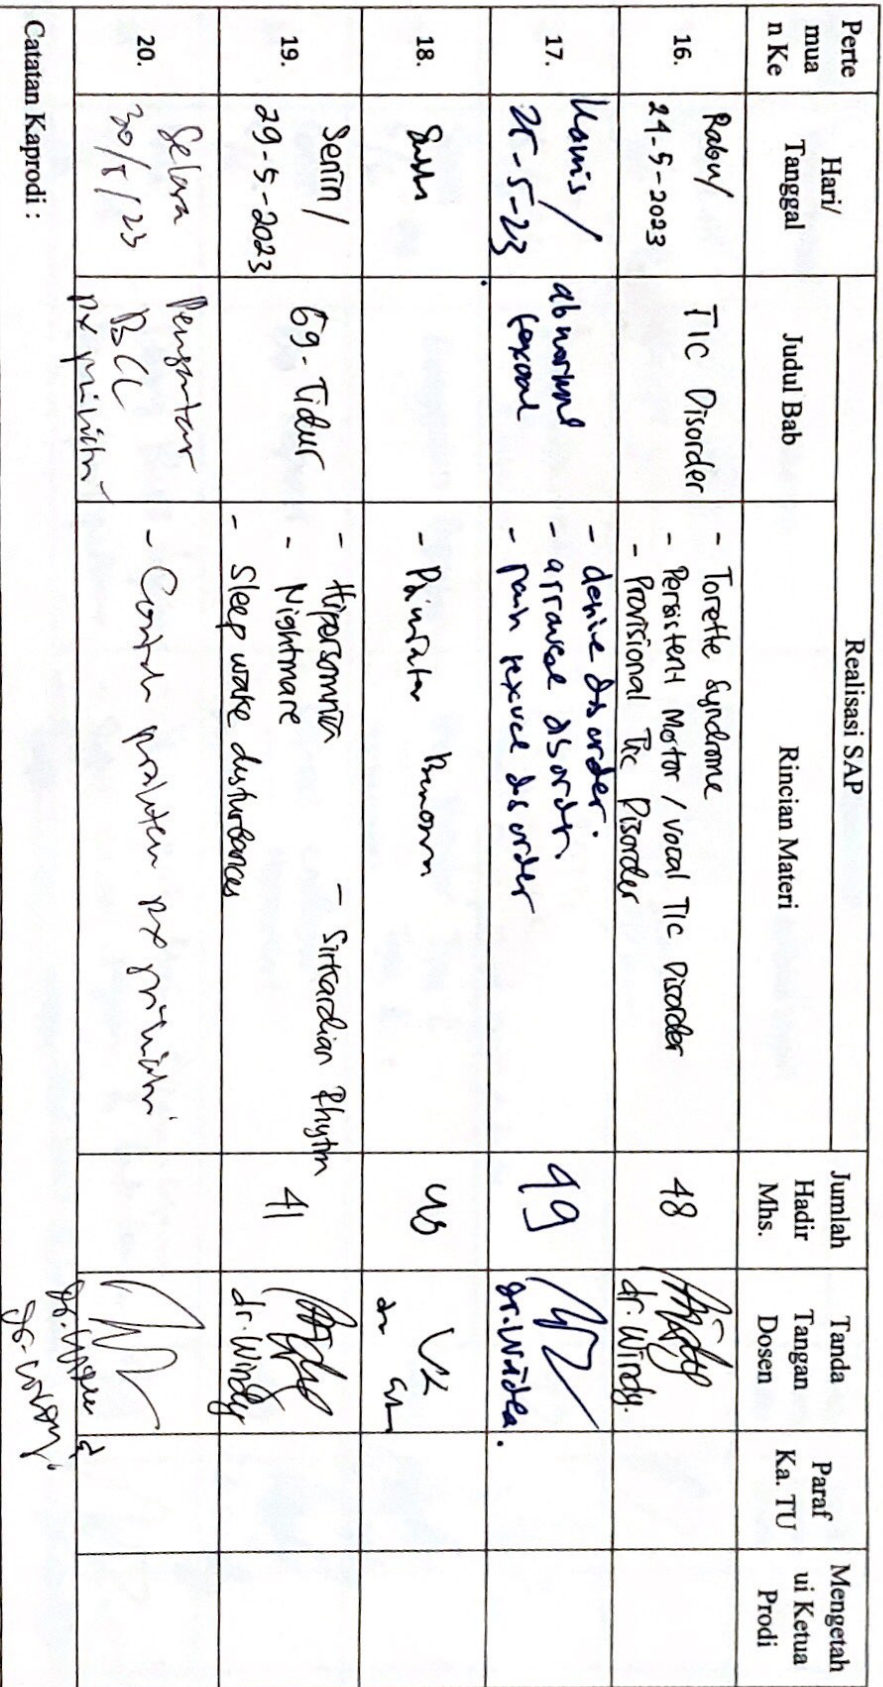 Perte
mua
n Ke
Hari/
Tanggal
Realisasi SAP
Judul Bab
Rincian Materi
Jumlah
Hadir
Mhs.
Tanda
Tangan
Dosen
Paraf
Ka. TU
Mengetah
ui Ketua
Prodi
16.
Rabu/
24-5-2023
Tic Disorder
- Torette Syndrome
- Persistent Motor / vocal Tic Disorder
- Provisional Tic Disorder
48
dr. Windy.
17.
Kamis /
25-5-23
abnormal
sexual
- desire disorder.
- arrausal disorder.
- pain sexual disorder
49
dr. Widea.
18.
-
19.
Senin /
29-5-2023
Gg-Tidur
- Hipersomnia
- Nightmare
- Sleep wake disturbances
- Sirkardian Rhytm
41
dr. Windy
20.
Selasa
30/5/23
Pengantar
px psikiatri
- Contoh px psikiatri
Catatan Kaprodi :